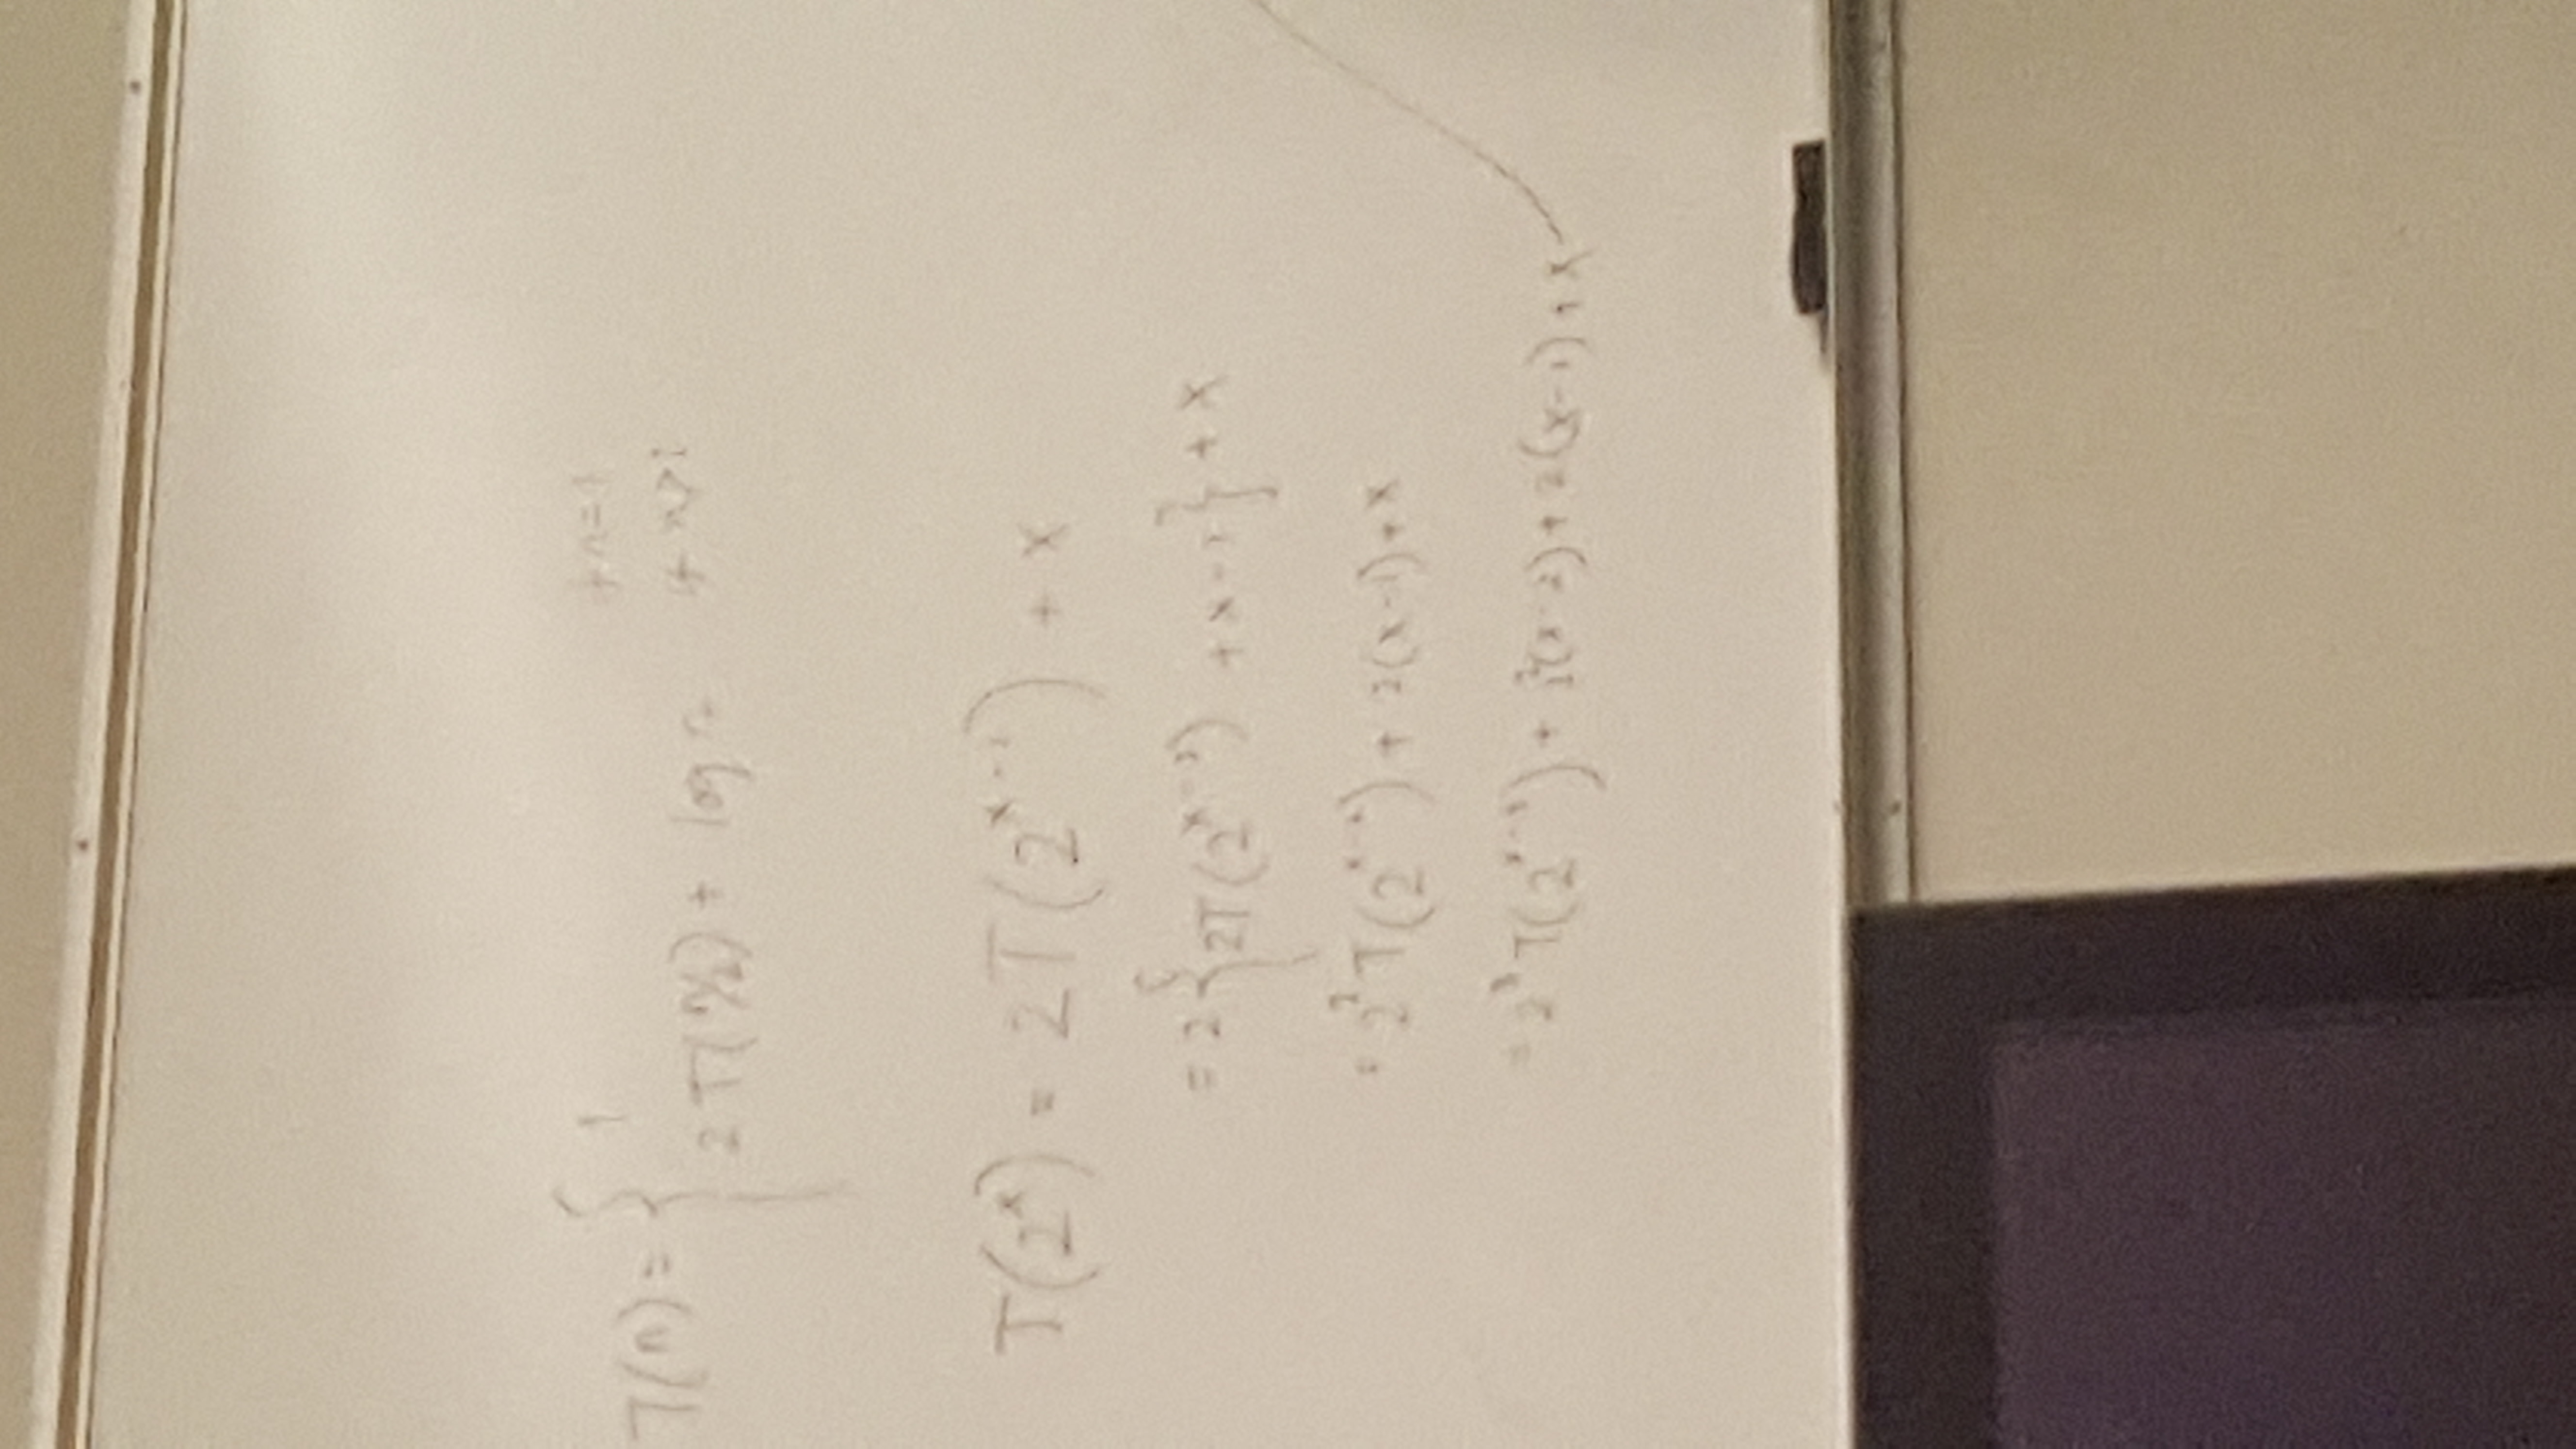 T(n) = { 1 if n=1
2T(n/2) + log n if n>1
T(2^x) = 2T(2^{x-1}) + x
= 2{2T(2^{x-2}) + x-1} + x
= 2^2 T(2^{x-2}) + 2(x-1) + x
= 2^3 T(2^{x-3}) + 2^2(x-2) + 2(x-1) + x